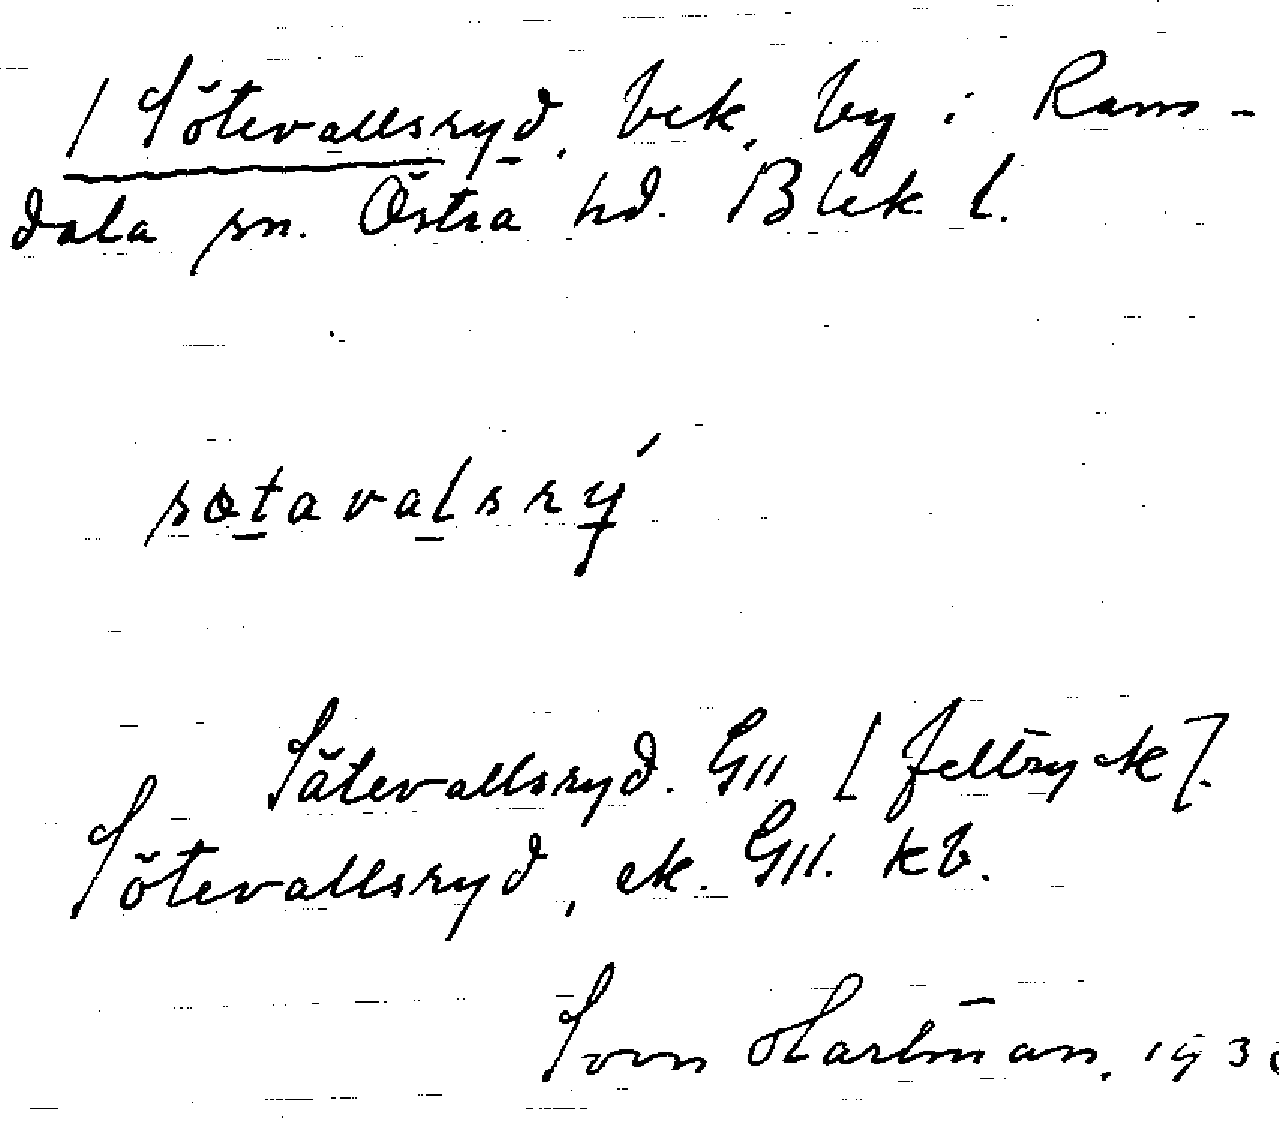 / Sötevallsryd, bek. by i Rams-
dala sn. Östra hd. Blek l.
søtavalsrý
Sätevallsryd. GII [feltryck].
Sötevallsryd, ek. GII. kb.
Sven Hartman, 193